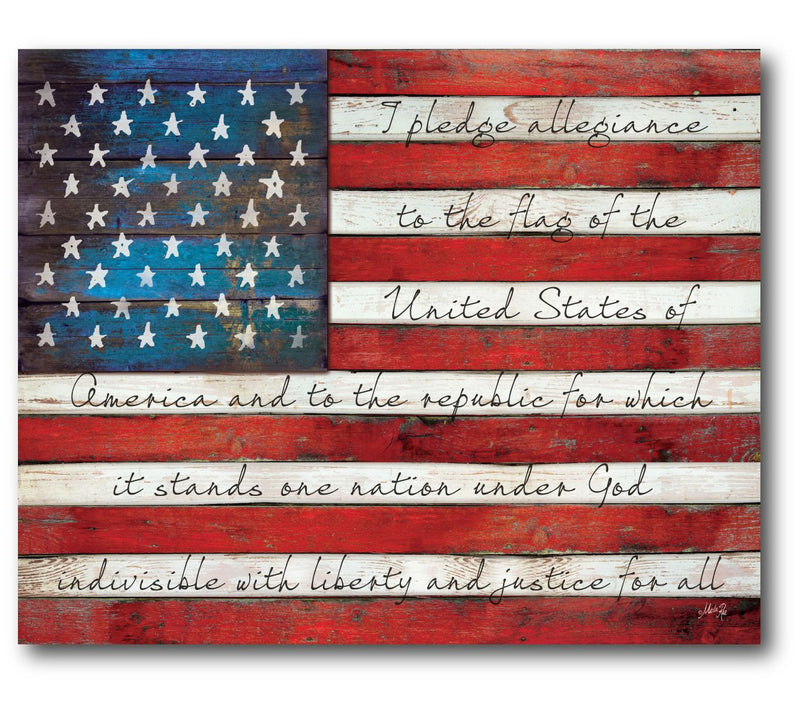 I pledge allegiance
to the flag of the
United States of
America and to the republic for which
it stands one nation under God
indivisible with liberty and justice for all
Marla Rae